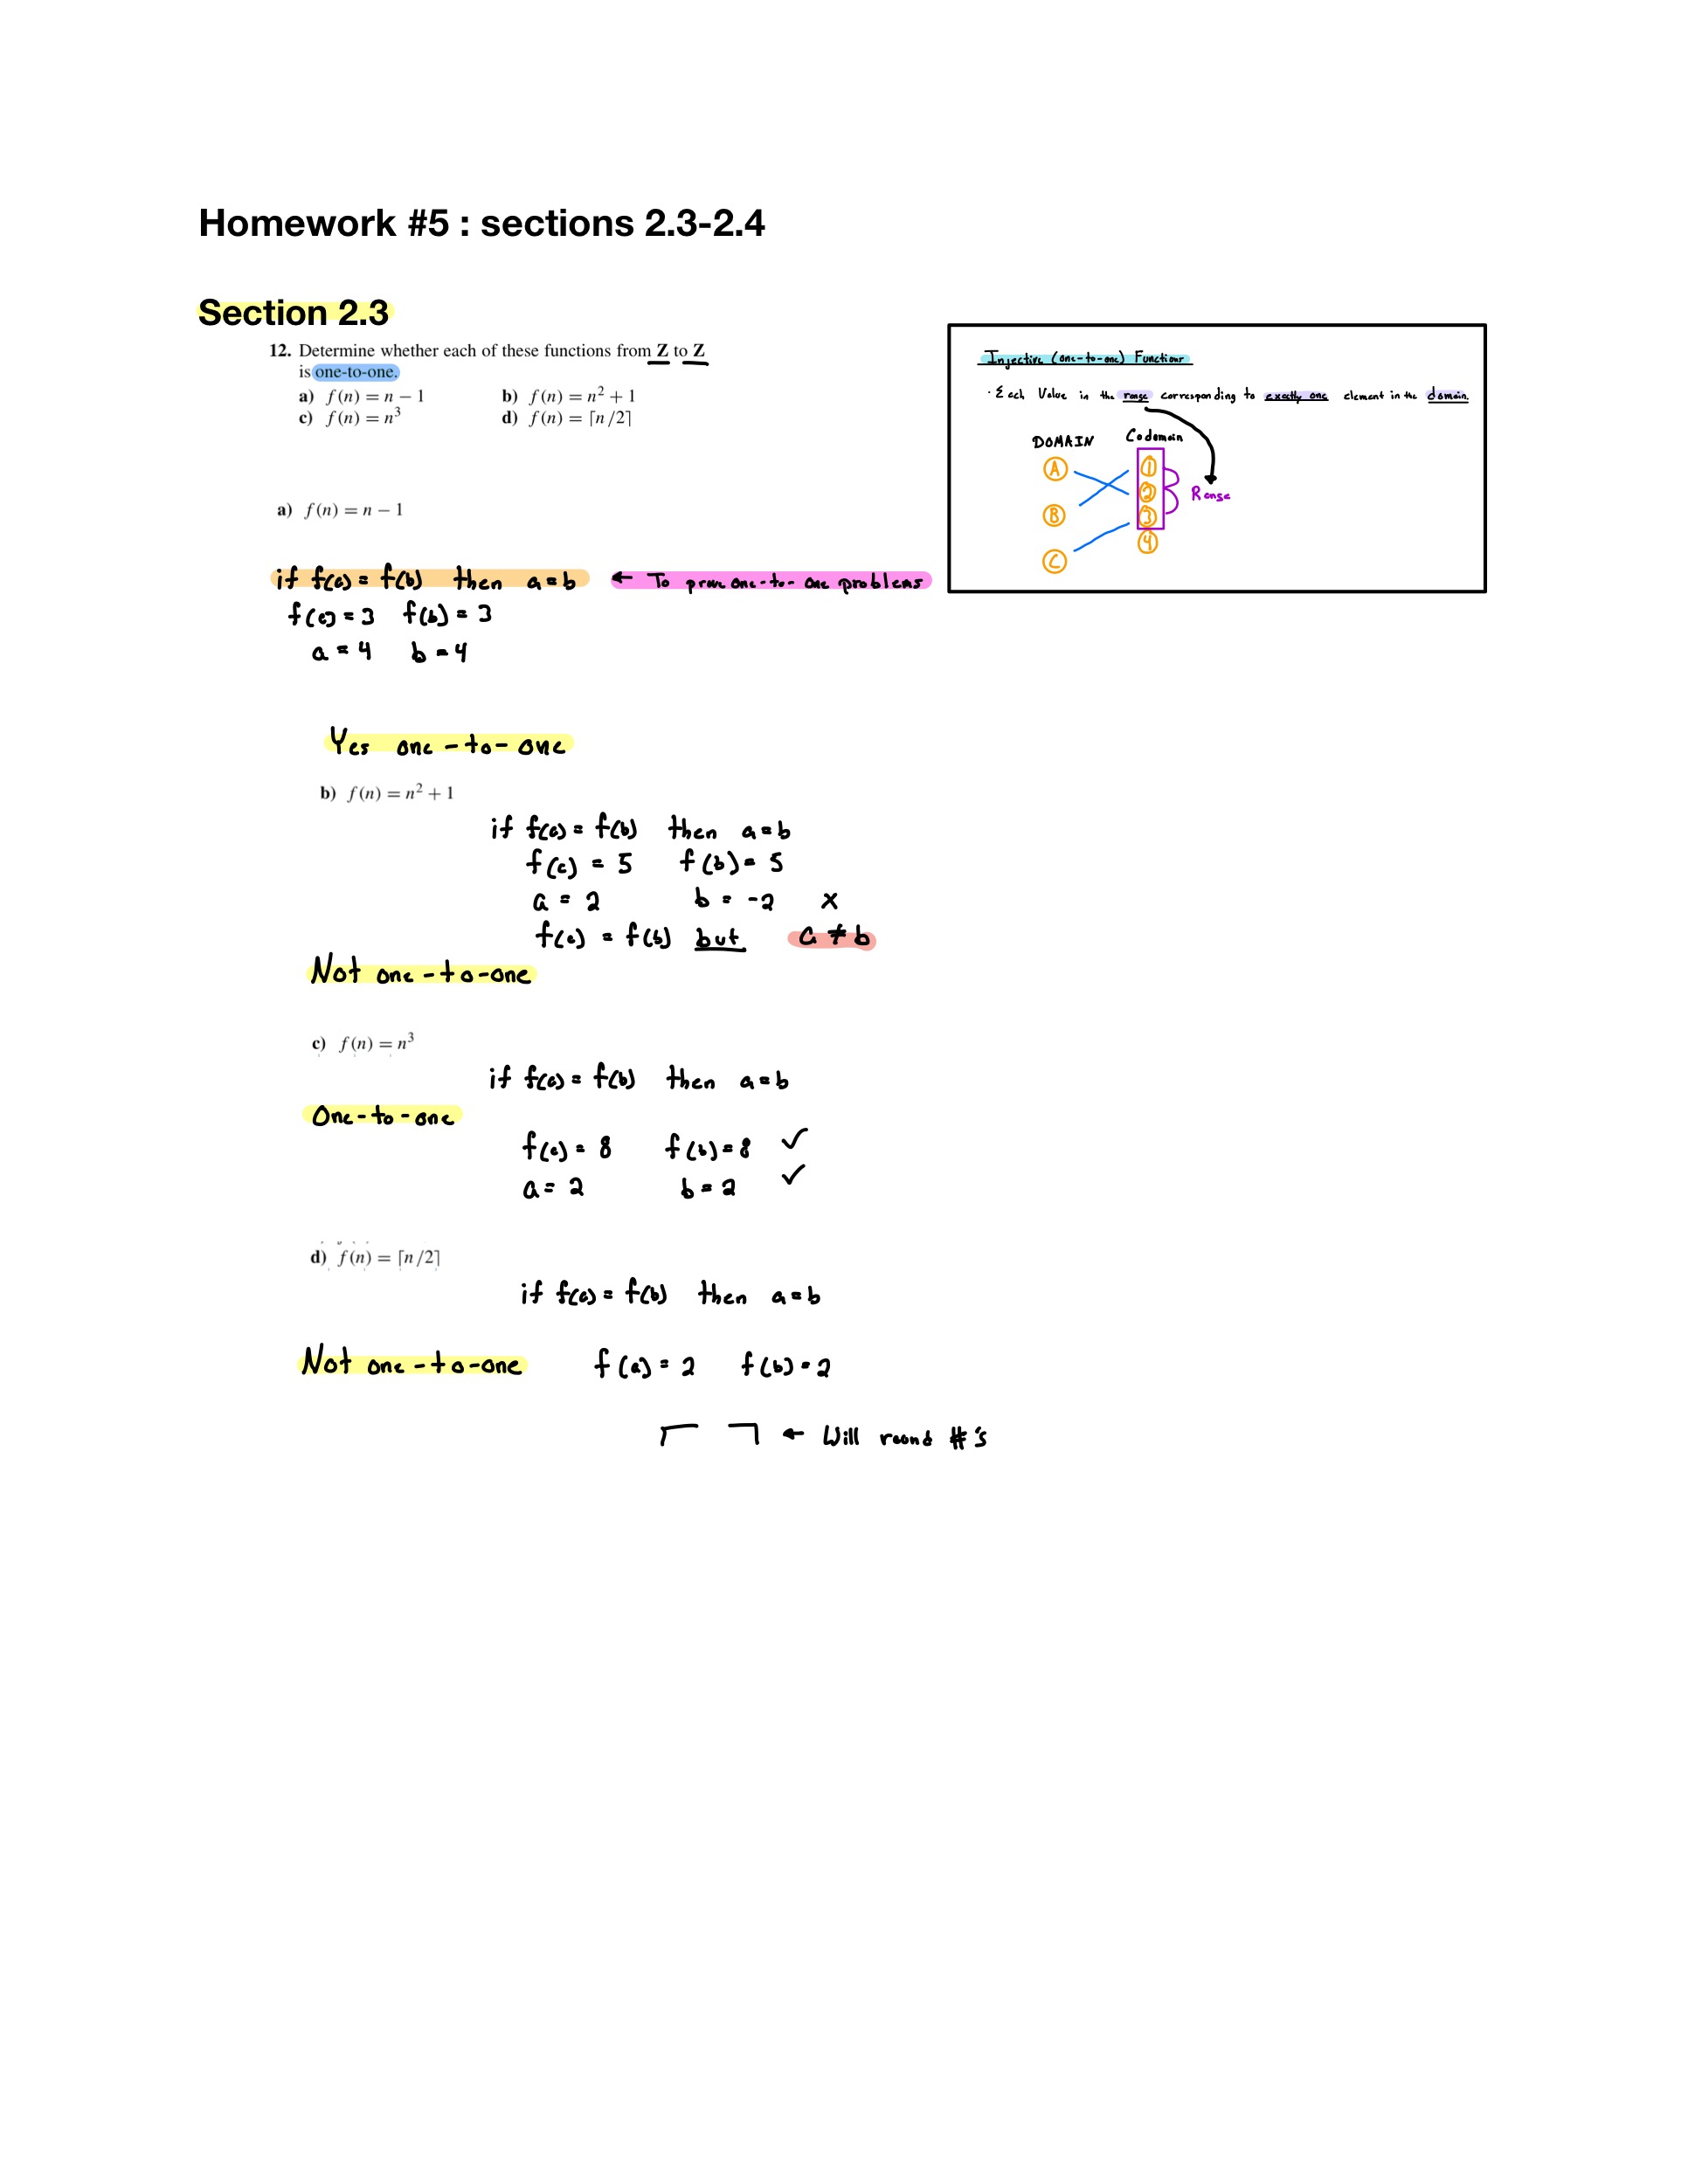 Homework #5 : sections 2.3-2.4
Section 2.3
12. Determine whether each of these functions from Z to Z
is one-to-one.
a) f(n) = n − 1 b) f(n) = n² + 1
c) f(n) = n³ d) f(n) = ⌈n/2⌉
Injective (one-to-one) Functions
· Each Value in the range corresponding to exactly one element in the domain.
DOMAIN Codomain
A 1
2 Range
B 3
C 4
a) f(n) = n − 1
if f(a) = f(b) then a = b ← To prove one-to-one problems
f(a) = 3 f(b) = 3
a = 4 b = 4
Yes one-to-one
b) f(n) = n² + 1
if f(a) = f(b) then a = b
f(a) = 5 f(b) = 5
a = 2 b = -2 x
f(a) = f(b) but a ≠ b
Not one-to-one
c) f(n) = n³
if f(a) = f(b) then a = b
One-to-one
f(a) = 8 f(b) = 8 ✓
a = 2 b = 2 ✓
d) f(n) = ⌈n/2⌉
if f(a) = f(b) then a = b
Not one-to-one f(a) = 2 f(b) = 2
⌈ ⌉ ← Will round #'s